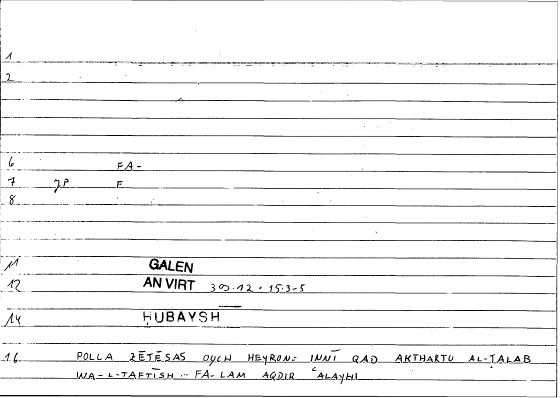 1
2
6 FA-
7 JP F
8
11 GALEN
12 AN VIRT 30.12 • 15.3-5
14 ḤUBAYSH
16 POLLA ZĒTĒSAS OYCH HEYRON: INNĪ QAD AKTHARTU AL-ṬALAB
WA-L-TAFTĪSH ... FA-LAM AQDIR ʿALAYHI